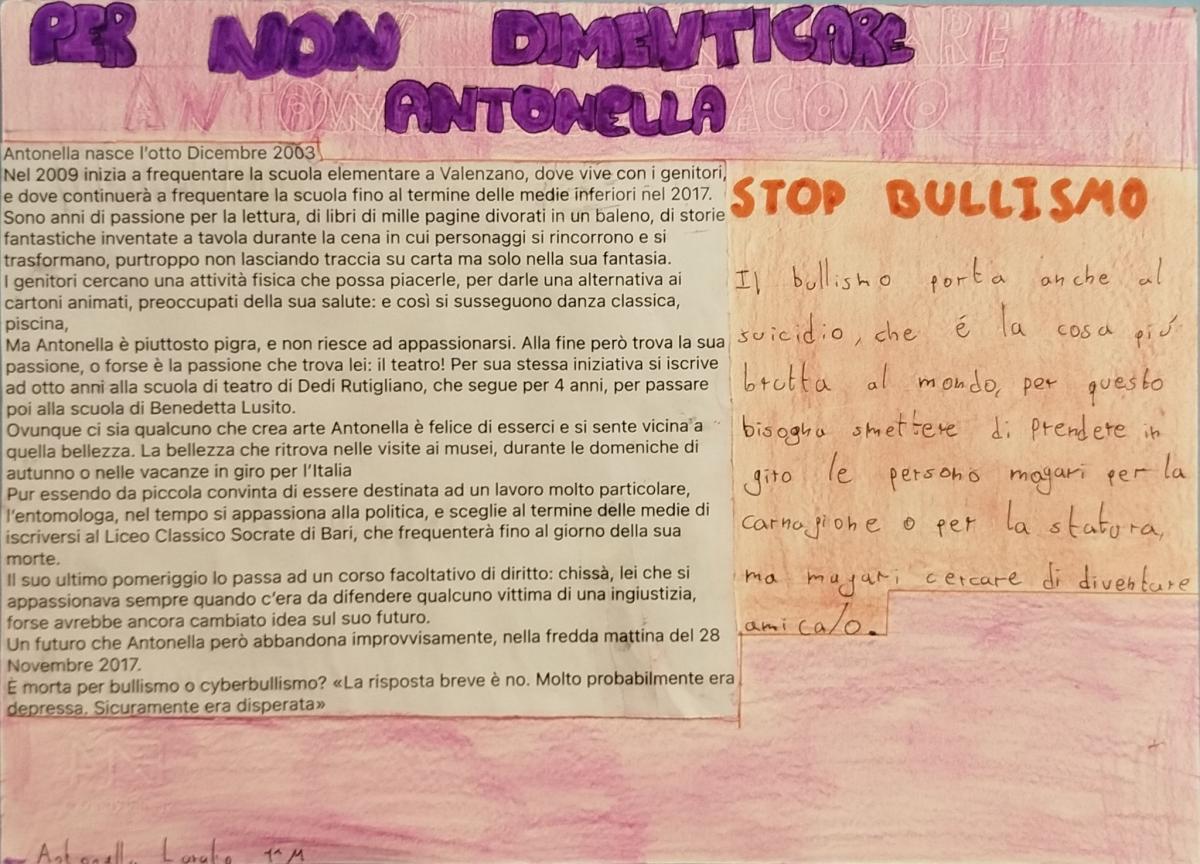 PER NON DIMENTICARE
ANTONELLA
Antonella nasce l'otto Dicembre 2003
Nel 2009 inizia a frequentare la scuola elementare a Valenzano, dove vive con i genitori,
e dove continuerà a frequentare la scuola fino al termine delle medie inferiori nel 2017.
Sono anni di passione per la lettura, di libri di mille pagine divorati in un baleno, di storie
fantastiche inventate a tavola durante la cena in cui personaggi si rincorrono e si
trasformano, purtroppo non lasciando traccia su carta ma solo nella sua fantasia.
I genitori cercano una attività fisica che possa piacerle, per darle una alternativa ai
cartoni animati, preoccupati della sua salute: e così si susseguono danza classica,
piscina,
Ma Antonella è piuttosto pigra, e non riesce ad appassionarsi. Alla fine però trova la sua
passione, o forse è la passione che trova lei: il teatro! Per sua stessa iniziativa si iscrive
ad otto anni alla scuola di teatro di Dedi Rutigliano, che segue per 4 anni, per passare
poi alla scuola di Benedetta Lusito.
Ovunque ci sia qualcuno che crea arte Antonella è felice di esserci e si sente vicina a
quella bellezza. La bellezza che ritrova nelle visite ai musei, durante le domeniche di
autunno o nelle vacanze in giro per l'Italia
Pur essendo da piccola convinta di essere destinata ad un lavoro molto particolare,
l'entomologa, nel tempo si appassiona alla politica, e sceglie al termine delle medie di
iscriversi al Liceo Classico Socrate di Bari, che frequenterà fino al giorno della sua
morte.
Il suo ultimo pomeriggio lo passa ad un corso facoltativo di diritto: chissà, lei che si
appassionava sempre quando c'era da difendere qualcuno vittima di una ingiustizia,
forse avrebbe ancora cambiato idea sul suo futuro.
Un futuro che Antonella però abbandona improvvisamente, nella fredda mattina del 28
Novembre 2017.
È morta per bullismo o cyberbullismo? «La risposta breve è no. Molto probabilmente era
depressa. Sicuramente era disperata»
STOP BULLISMO
Il bullismo porta anche al
suicidio, che é la cosa piú
brutta al mondo, per questo
bisogna smettere di prendere in
giro le persone magari per la
carnagione o per la statura,
ma magari cercare di diventare
amica/o.
Antonella 1ª M